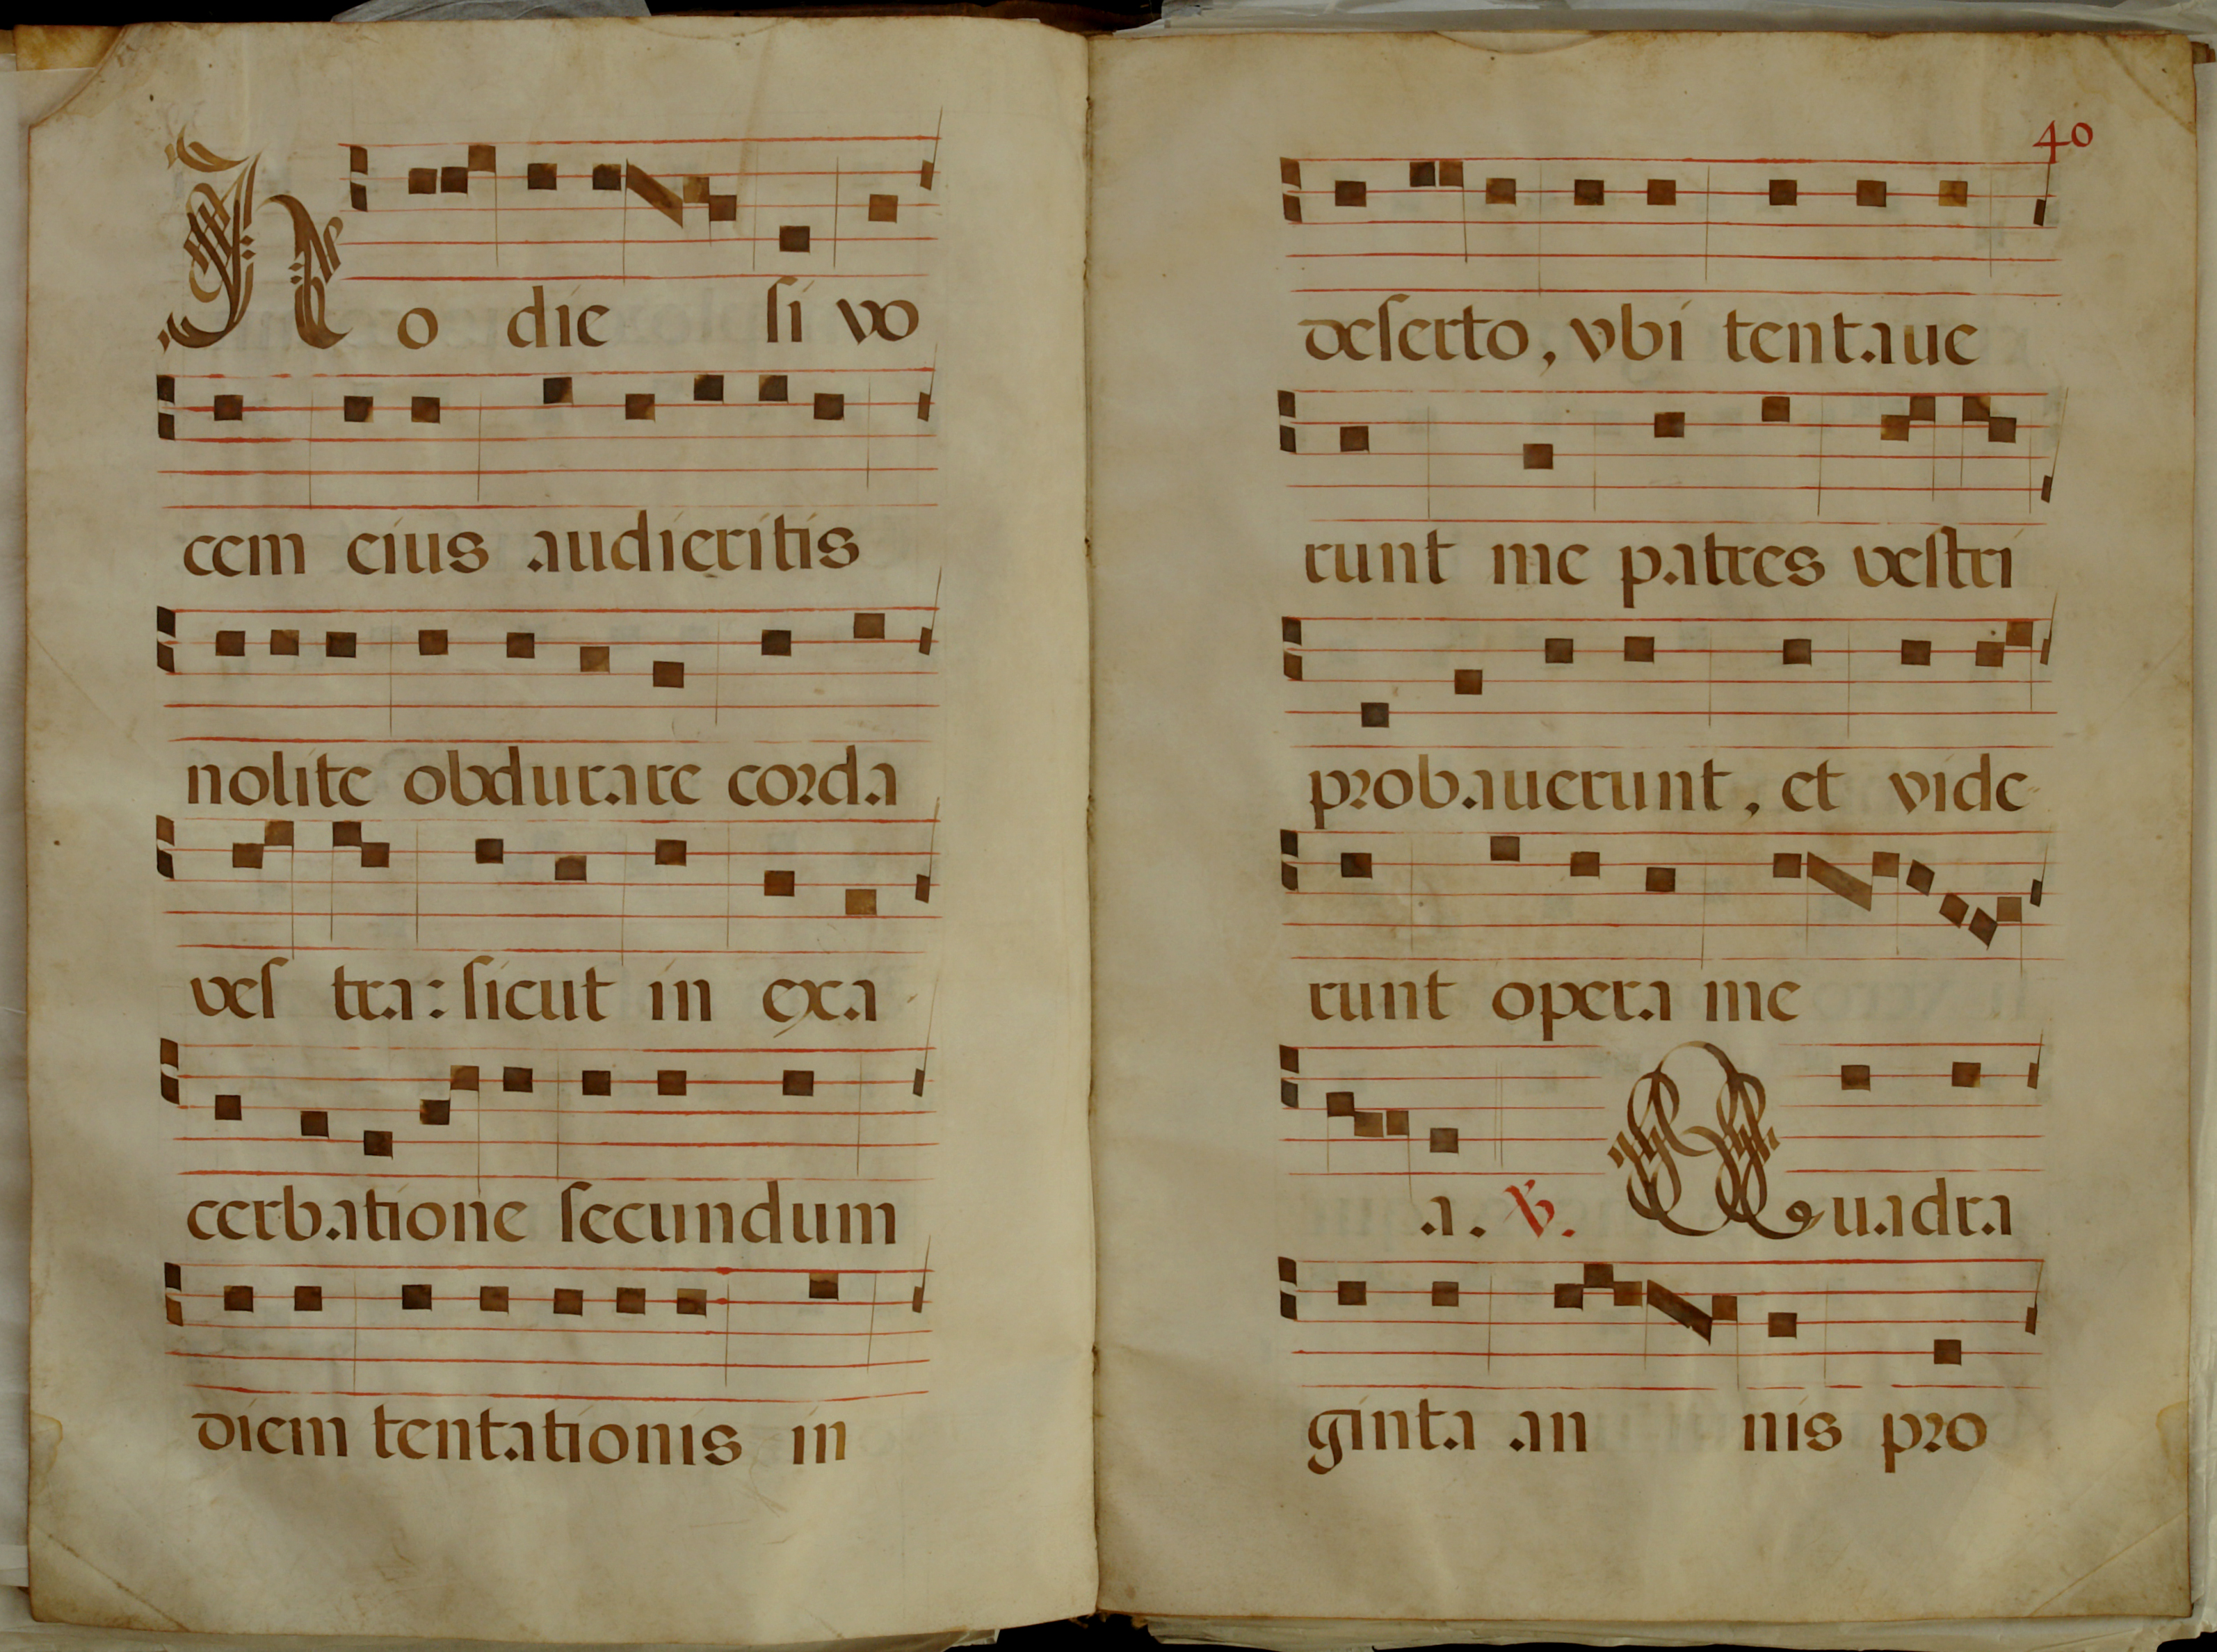 Hodie si vo
cem eius audieritis
nolite obdurare corda
vestra: sicut in exa
cerbatione secundum
diem tentationis in
40
deserto, vbi tentaue
runt me patres vestri
probauerunt, et vide
runt opera me
a. ℣. Quadra
ginta annis pro